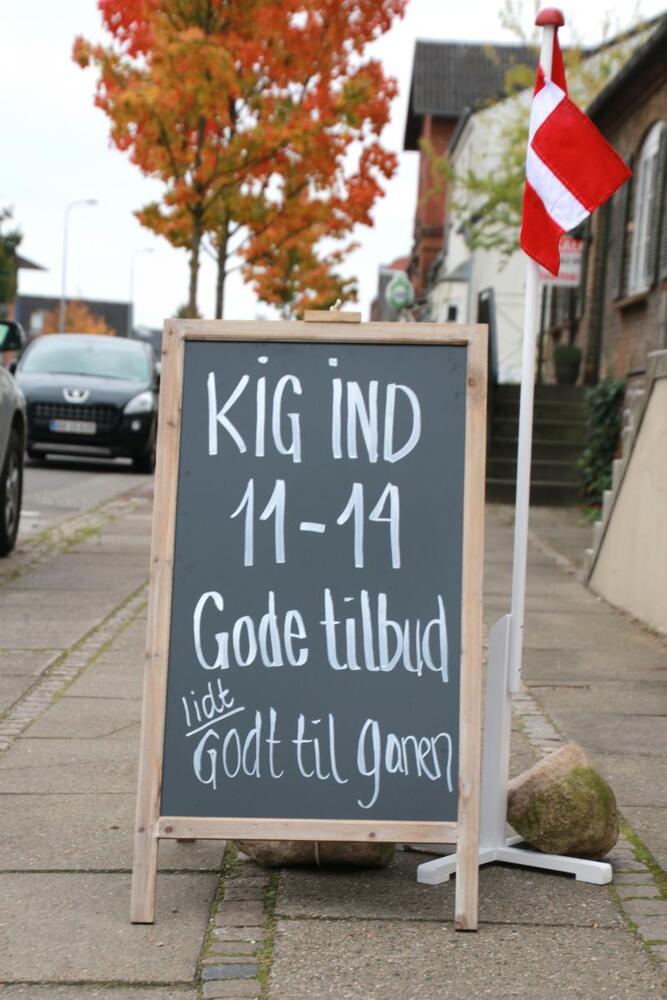 KiG iND
11-14
Gode tilbud
lidt
Godt til ganen